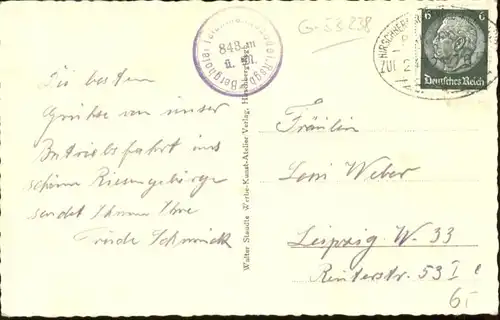 G-53238
848 m
ü. M.
6 6
Deutsches Reich
Die besten
Grüße von unser
Betriebsfahrt ins
schöne Riesengebirge
sendet Ihnen Ihre
Trude Schmuck
Walter Staudte Werbe-Kunst-Atelier Verlag, Hirschberg/Rsgb.
Fräulein
Loni Weber
Leipzig W. 33
Reuterstr. 53 I
6,-